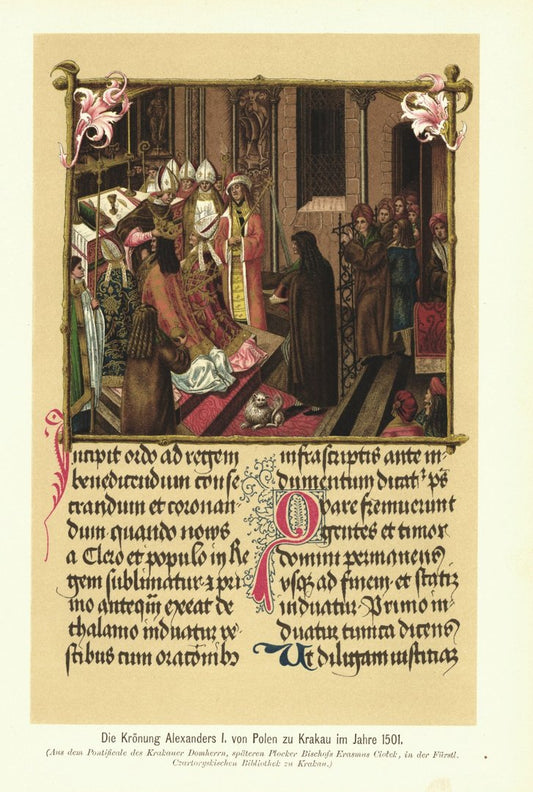 Incipit ordo ad regem
benedicendum conse
crandum et coronan
dum quando nows
a Clero et populo in Re
gem sublimatur ⁊ pri
mo anteqm̄ exeat de
thalamo induatur ve-
stibus cum orac̄onibꝫ
infrascriptis ante in-
dumentum dicatꝛ ps̄
Quare fremuerunt
gentes et timor
domini permanens
usqꝫ ad finem et statiꝫ
induatur Primo in-
duatur tunica dicens
Ut diligam iusticiaꝫ
Die Krönung Alexanders I. von Polen zu Krakau im Jahre 1501.
(Aus dem Pontificale des Krakauer Domherrn, späteren Plocker Bischofs Erasmus Ciolek, in der Fürstl.
Czartoryskischen Bibliothek zu Krakau.)